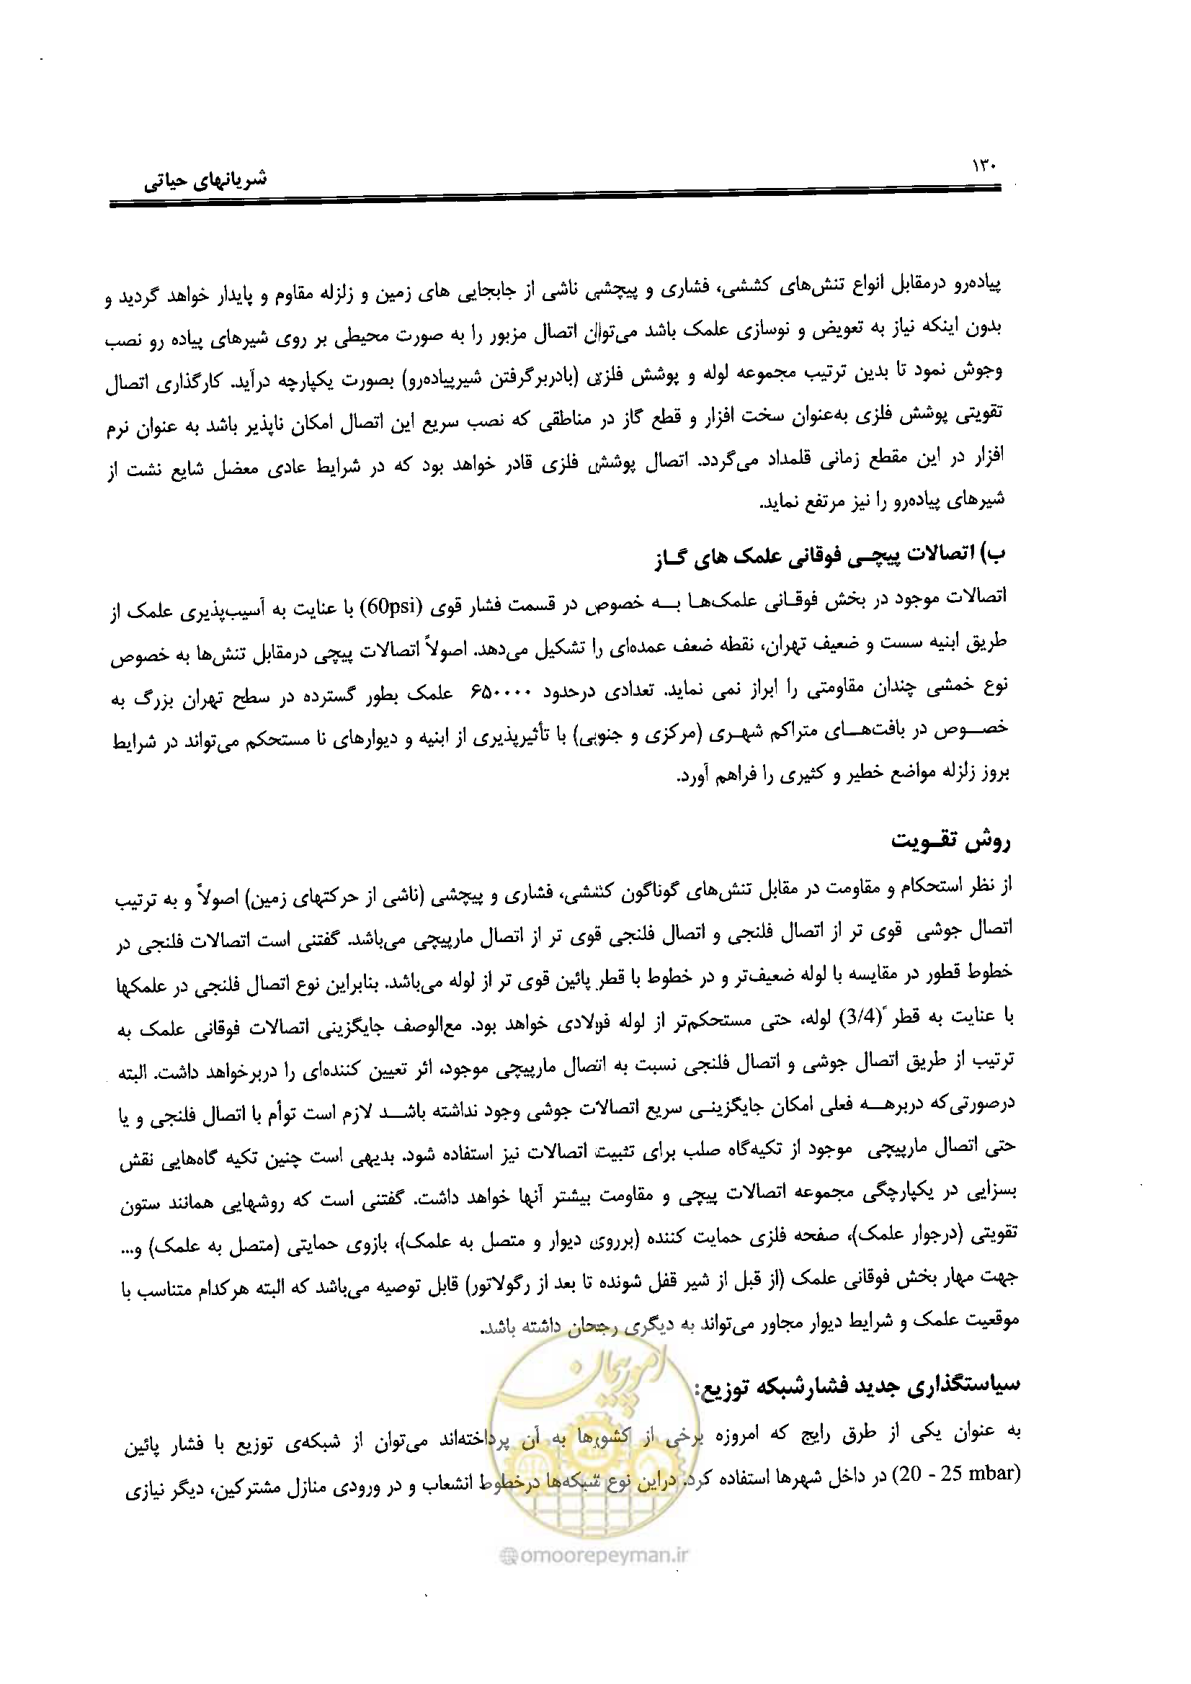 ۱۳۰
شریانهای حیاتی
پیاده‌رو درمقابل انواع تنش‌های کششی، فشاری و پیچشی ناشی از جابجایی های زمین و زلزله مقاوم و پایدار خواهد گردید و
بدون اینکه نیاز به تعویض و نوسازی علمک باشد می‌توان اتصال مزبور را به صورت محیطی بر روی شیرهای پیاده رو نصب
وجوش نمود تا بدین ترتیب مجموعه لوله و پوشش فلزی (بادربرگرفتن شیرپیاده‌رو) بصورت یکپارچه درآید. کارگذاری اتصال
تقویتی پوشش فلزی به‌عنوان سخت افزار و قطع گاز در مناطقی که نصب سریع این اتصال امکان ناپذیر باشد به عنوان نرم
افزار در این مقطع زمانی قلمداد می‌گردد. اتصال پوشش فلزی قادر خواهد بود که در شرایط عادی معضل شایع نشت از
شیرهای پیاده‌رو را نیز مرتفع نماید.
ب) اتصالات پیچـی فوقانی علمک های گـاز
اتصالات موجود در بخش فوقـانی علمک‌هـا بـه خصوص در قسمت فشار قوی (60psi) با عنایت به آسیب‌پذیری علمک از
طریق ابنیه سست و ضعیف تهران، نقطه ضعف عمده‌ای را تشکیل می‌دهد. اصولاً اتصالات پیچی درمقابل تنش‌ها به خصوص
نوع خمشی چندان مقاومتی را ابراز نمی نماید. تعدادی درحدود ۶۵۰۰۰۰ علمک بطور گسترده در سطح تهران بزرگ به
خصـوص در بافت‌هـای متراکم شهـری (مرکزی و جنوبی) با تأثیرپذیری از ابنیه و دیوارهای نا مستحکم می‌تواند در شرایط
بروز زلزله مواضع خطیر و کثیری را فراهم آورد.
روش تقـویت
از نظر استحکام و مقاومت در مقابل تنش‌های گوناگون کششی، فشاری و پیچشی (ناشی از حرکتهای زمین) اصولاً و به ترتیب
اتصال جوشی قوی تر از اتصال فلنجی و اتصال فلنجی قوی تر از اتصال مارپیچی می‌باشد. گفتنی است اتصالات فلنجی در
خطوط قطور در مقایسه با لوله ضعیف‌تر و در خطوط با قطر پائین قوی تر از لوله می‌باشد. بنابراین نوع اتصال فلنجی در علمکها
با عنایت به قطر ً(3/4) لوله، حتی مستحکم‌تر از لوله فولادی خواهد بود. مع‌الوصف جایگزینی اتصالات فوقانی علمک به
ترتیب از طریق اتصال جوشی و اتصال فلنجی نسبت به اتصال مارپیچی موجود، اثر تعیین کننده‌ای را دربرخواهد داشت. البته
درصورتی‌که دربرهـه فعلی امکان جایگزینـی سریع اتصالات جوشی وجود نداشته باشـد لازم است توأم با اتصال فلنجی و یا
حتی اتصال مارپیچی موجود از تکیه‌گاه صلب برای تثبیت اتصالات نیز استفاده شود. بدیهی است چنین تکیه گاه‌هایی نقش
بسزایی در یکپارچگی مجموعه اتصالات پیچی و مقاومت بیشتر آنها خواهد داشت. گفتنی است که روشهایی همانند ستون
تقویتی (درجوار علمک)، صفحه فلزی حمایت کننده (برروی دیوار و متصل به علمک)، بازوی حمایتی (متصل به علمک) و...
جهت مهار بخش فوقانی علمک (از قبل از شیر قفل شونده تا بعد از رگولاتور) قابل توصیه می‌باشد که البته هرکدام متناسب با
موقعیت علمک و شرایط دیوار مجاور می‌تواند به دیگری رجحان داشته باشد.
سیاستگذاری جدید فشارشبکه توزیع:
به عنوان یکی از طرق رایج که امروزه برخی از کشورها به آن پرداخته‌اند می‌توان از شبکه‌ی توزیع با فشار پائین
(20 - 25 mbar) در داخل شهرها استفاده کرد. دراین نوع شبکه‌ها درخطوط انشعاب و در ورودی منازل مشترکین، دیگر نیازی
امور پیمان
@omoorepeyman.ir